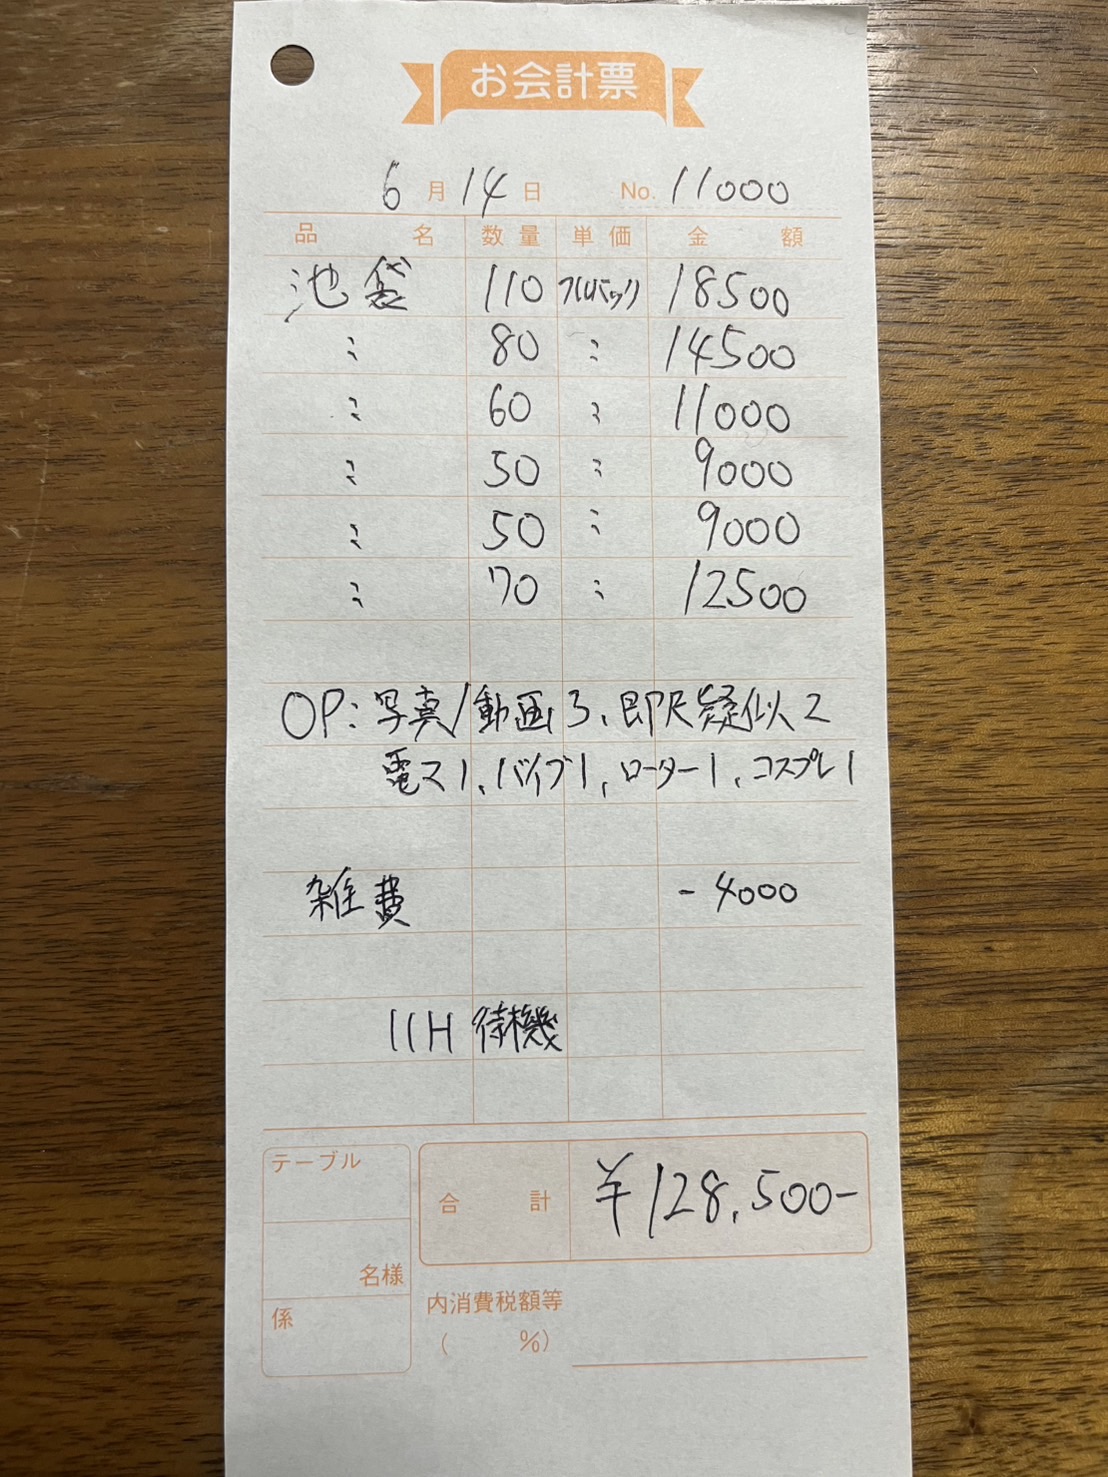 お会計票
6月14日 No. 11000
品名 数量 単価 金額
池袋 110 フルバック 18500
〃 80 〃 14500
〃 60 〃 11000
〃 50 〃 9000
〃 50 〃 9000
〃 70 〃 12500
OP:写真/動画3、即尺疑似2
電ス1、バイブ1、ローター1、コスプレ1
雑費 -4000
11H 待機
テーブル
名様
係
合計 ¥128,500-
内消費税額等
( %)